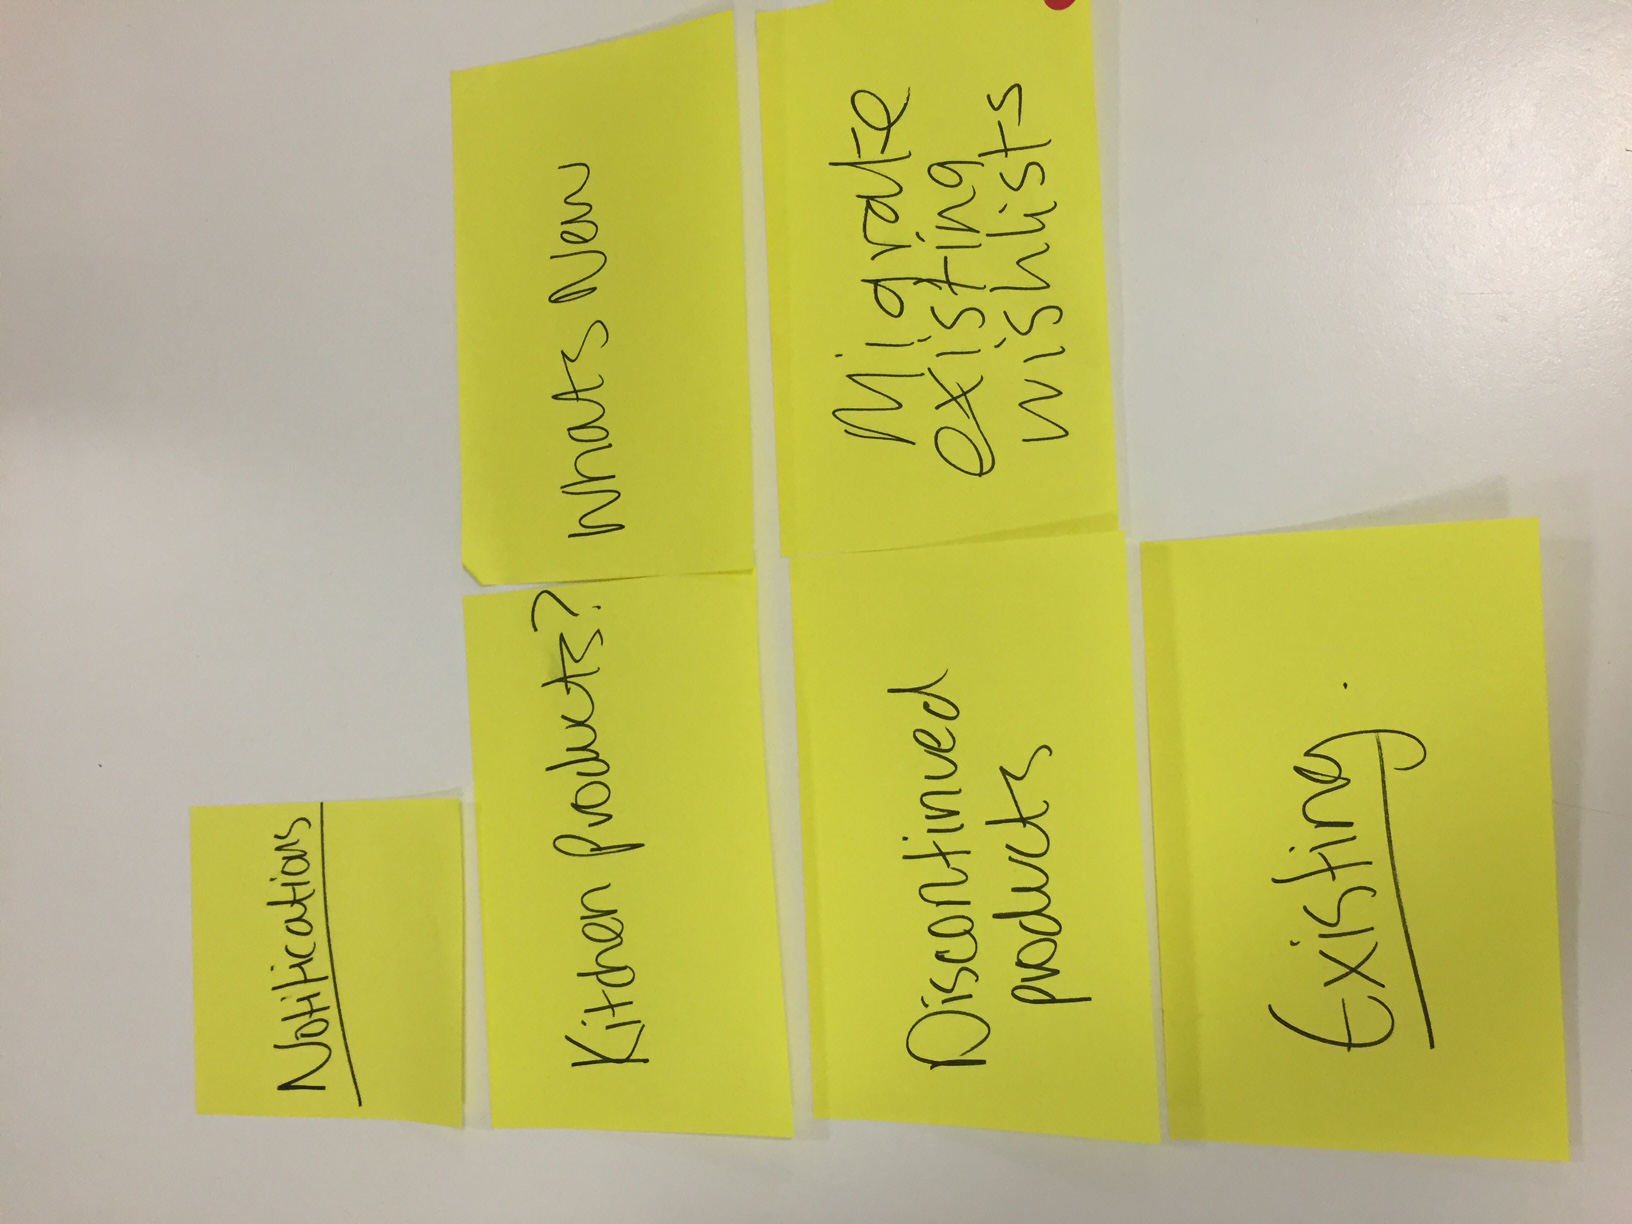 Notifications
Kitchen Products?
Whats New
Discontinued
products
Migrate
existing
wishlists
Existing.